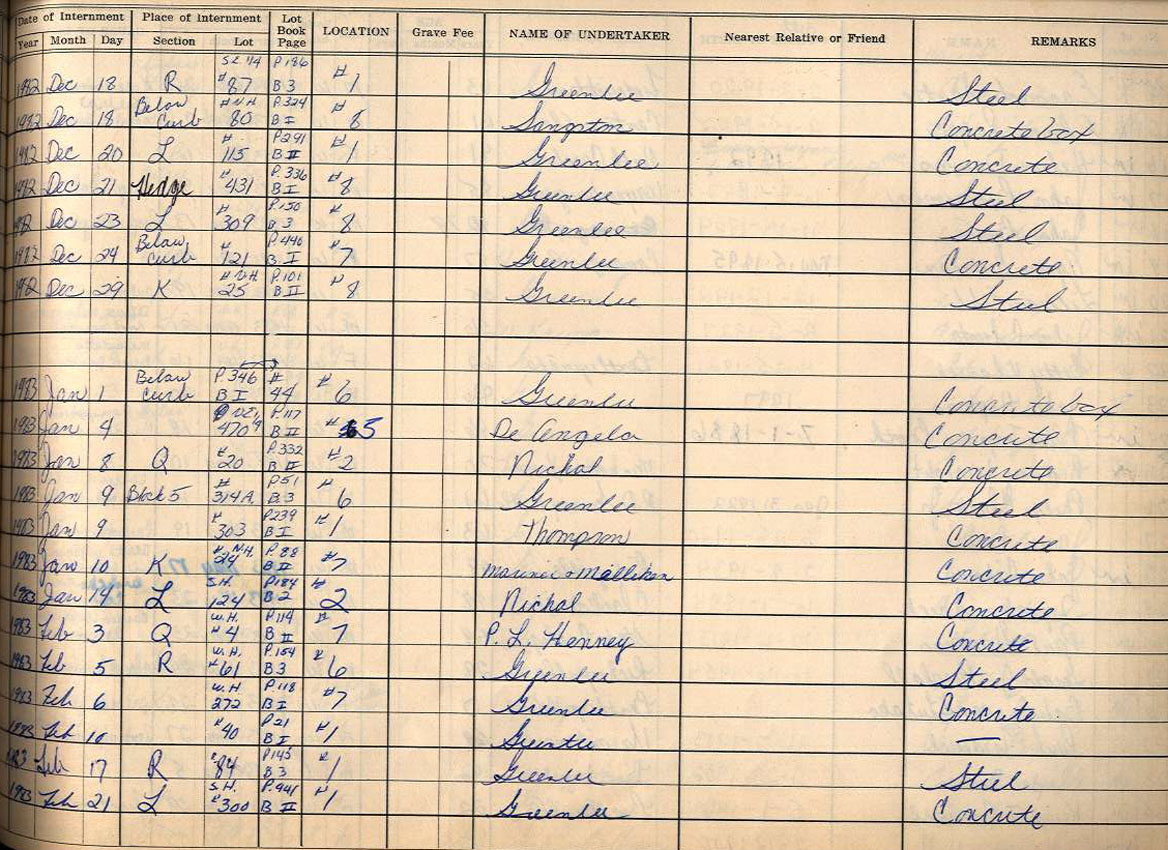 Date of Internment Place of Internment Lot Book Page LOCATION Grave Fee NAME OF UNDERTAKER Nearest Relative or Friend REMARKS
Year Month Day Section Lot
1982 Dec 18 R S.E. 1/4 #87 P.186 B 3 #1 Greenlee Steel
1982 Dec 18 Below curb # N.H. 80 P.324 B I #8 Sangston Concrete box
1982 Dec 20 L # 115 P.291 B II #1 Greenlee Concrete
1982 Dec 21 Hedge # 431 P.336 B I #8 Greenlee Steel
1982 Dec 23 L # 309 P.150 B 3 #8 Greenlee Steel
1982 Dec 24 Below curb # 121 P.446 B I #7 Greenlee Concrete
1982 Dec 29 K # N.H. 25 P.101 B II #8 Greenlee Steel
1983 Jan 1 Below curb P.346 B I # 44 #6 Greenlee Concrete box
1983 Jan 4 470 P.117 B II #5 De Angelo Concrete
1983 Jan 8 Q # 20 P.332 B II #2 Nichol Concrete
1983 Jan 9 Block 5 # 314A P.51 B.3 #6 Greenlee Steel
1983 Jan 9 # 303 P.239 B I #1 Thompson Concrete
1983 Jan 10 K # N.H. 24 P.88 B II #7 Mariner & Millikan Concrete
1983 Jan 14 L S.H. 124 P.184 B 2 #2 Nichol Concrete
1983 Feb 3 Q W.H. #4 P.114 B II #7 P. L. Henney Concrete
1983 Feb 5 R W.H. #61 P.154 B 3 #6 Greenlee Steel
1983 Feb 6 W.H. 272 P.118 B I #7 Greenlee Concrete
1983 Feb 10 #40 P.21 B I #1 Greenlee —
1983 Feb 17 R #84 P.145 B 3 #1 Greenlee Steel
1983 Feb 21 L S.H. #300 P.441 B II #1 Greenlee Concrete